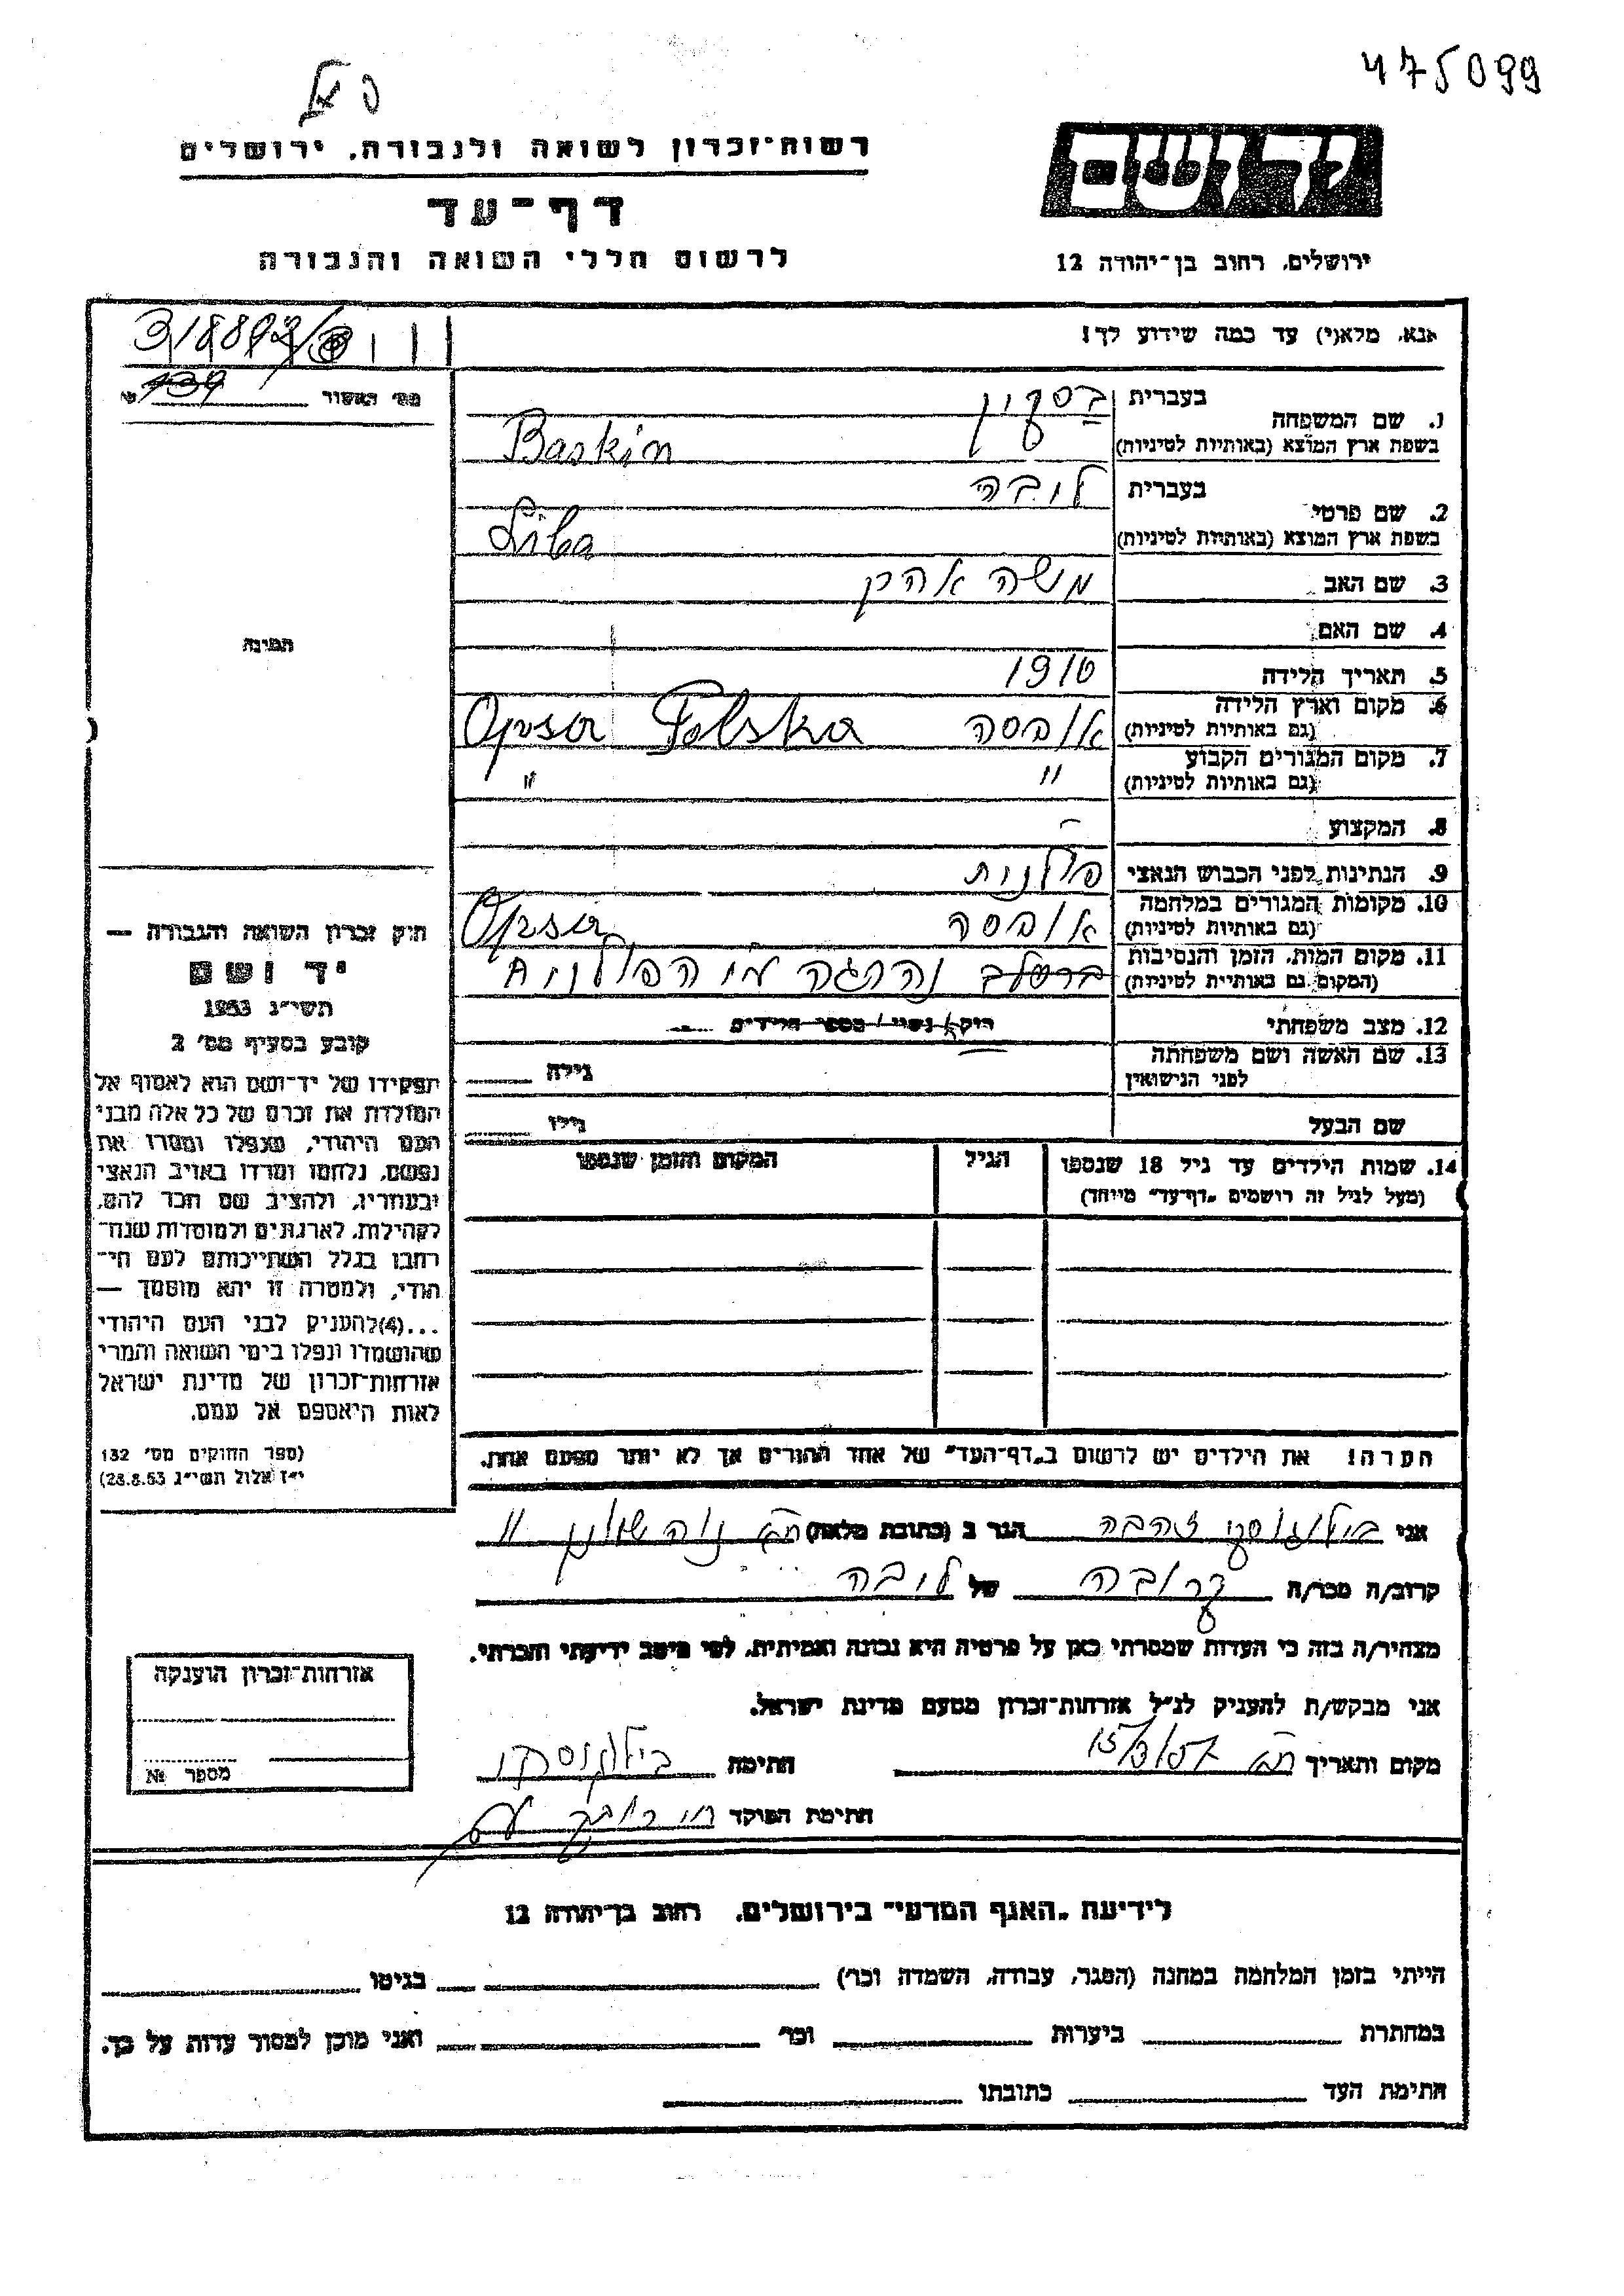 475099
רשות־זכרון לשואה ולגבורה, ירושלים
דף־עד
לרשום חללי השואה והגבורה
ירושלים, רחוב בן־יהודה 12
אנא, מלא(י) עד כמה שידוע לך!
מס' האשור 139
1. שם המשפחה בעברית בסקין
בשפת ארץ המוצא (באותיות לטיניות) Baskin
2. שם פרטי בעברית לובה
בשפת ארץ המוצא (באותיות לטיניות) Liba
3. שם האב משה אהרן
4. שם האם
5. תאריך הלידה 1910
6. מקום וארץ הלידה (גם באותיות לטיניות) אופסה Opsa Polska
7. מקום המגורים הקבוע (גם באותיות לטיניות) " "
8. המקצוע -
9. הנתינות לפני הכבוש הנאצי פולנית
10. מקומות המגורים במלחמה (גם באותיות לטיניות) אופסה Opsa
11. מקום המות, הזמן והנסיבות (המקום גם באותיות לטיניות) נהרגה ע"י הפולנים
12. מצב משפחתי רוק/ נשוי/ מספר הילדים
13. שם האשה ושם משפחתה לפני הנישואין גילה
שם הבעל גילו
14. שמות הילדים עד גיל 18 שנספו (מעל לגיל זה רושמים „דף־עד" מיוחד) הגיל המקום והזמן שנספו
הערה! את הילדים יש לרשום ב„דף־העד" של אחד ההורים אך לא יותר מפעם אחת.
תמונה
חוק זכרון השואה והגבורה —
יד ושם
תשי"ג 1953
קובע בסעיף מס' 2
תפקידו של יד־ושם הוא לאסוף אל
המולדת את זכרם של כל אלה מבני
העם היהודי, שנפלו ומסרו את
נפשם, נלחמו ומרדו באויב הנאצי
ובעוזריו, ולהציב שם וזכר להם,
לקהילות, לארגונים ולמוסדות שנח־
רבו בגלל השתייכותם לעם הי־
הודי, ולמטרה זו יהא מוסמך —
...(4)להעניק לבני העם היהודי
שהושמדו ונפלו בימי השואה והמרי
אזרחות־זכרון של מדינת ישראל
לאות היאספם אל עמם.
(ספר החוקים מס' 132
י"ז אלול תשי"ג 28.8.53)
אני זהבה הגר ב (כתובת מלאה) נוה שאנן 11
קרוב/ה מכר/ה קרובה של לובה
מצהיר/ה בזה כי העדות שמסרתי כאן על פרטיה היא נכונה ואמיתית, לפי מיטב ידיעתי והכרתי.
אני מבקש/ת להעניק לנ"ל אזרחות־זכרון מטעם מדינת ישראל.
מקום ותאריך חתימה
חתימת הפוקד
אזרחות־זכרון הוענקה
מספר №
לידיעת „האגף המדעי" בירושלים, רחוב בן־יהודה 12
הייתי בזמן המלחמה במחנה (הסגר, עבודה, השמדה וכו') בגיטו
במחתרת ביערות וכו' ואני מוכן למסור עדות על כך.
חתימת העד כתובתו